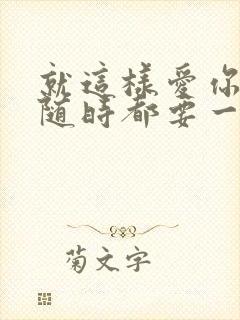 就這樣愛你
随時都要一
菊文字